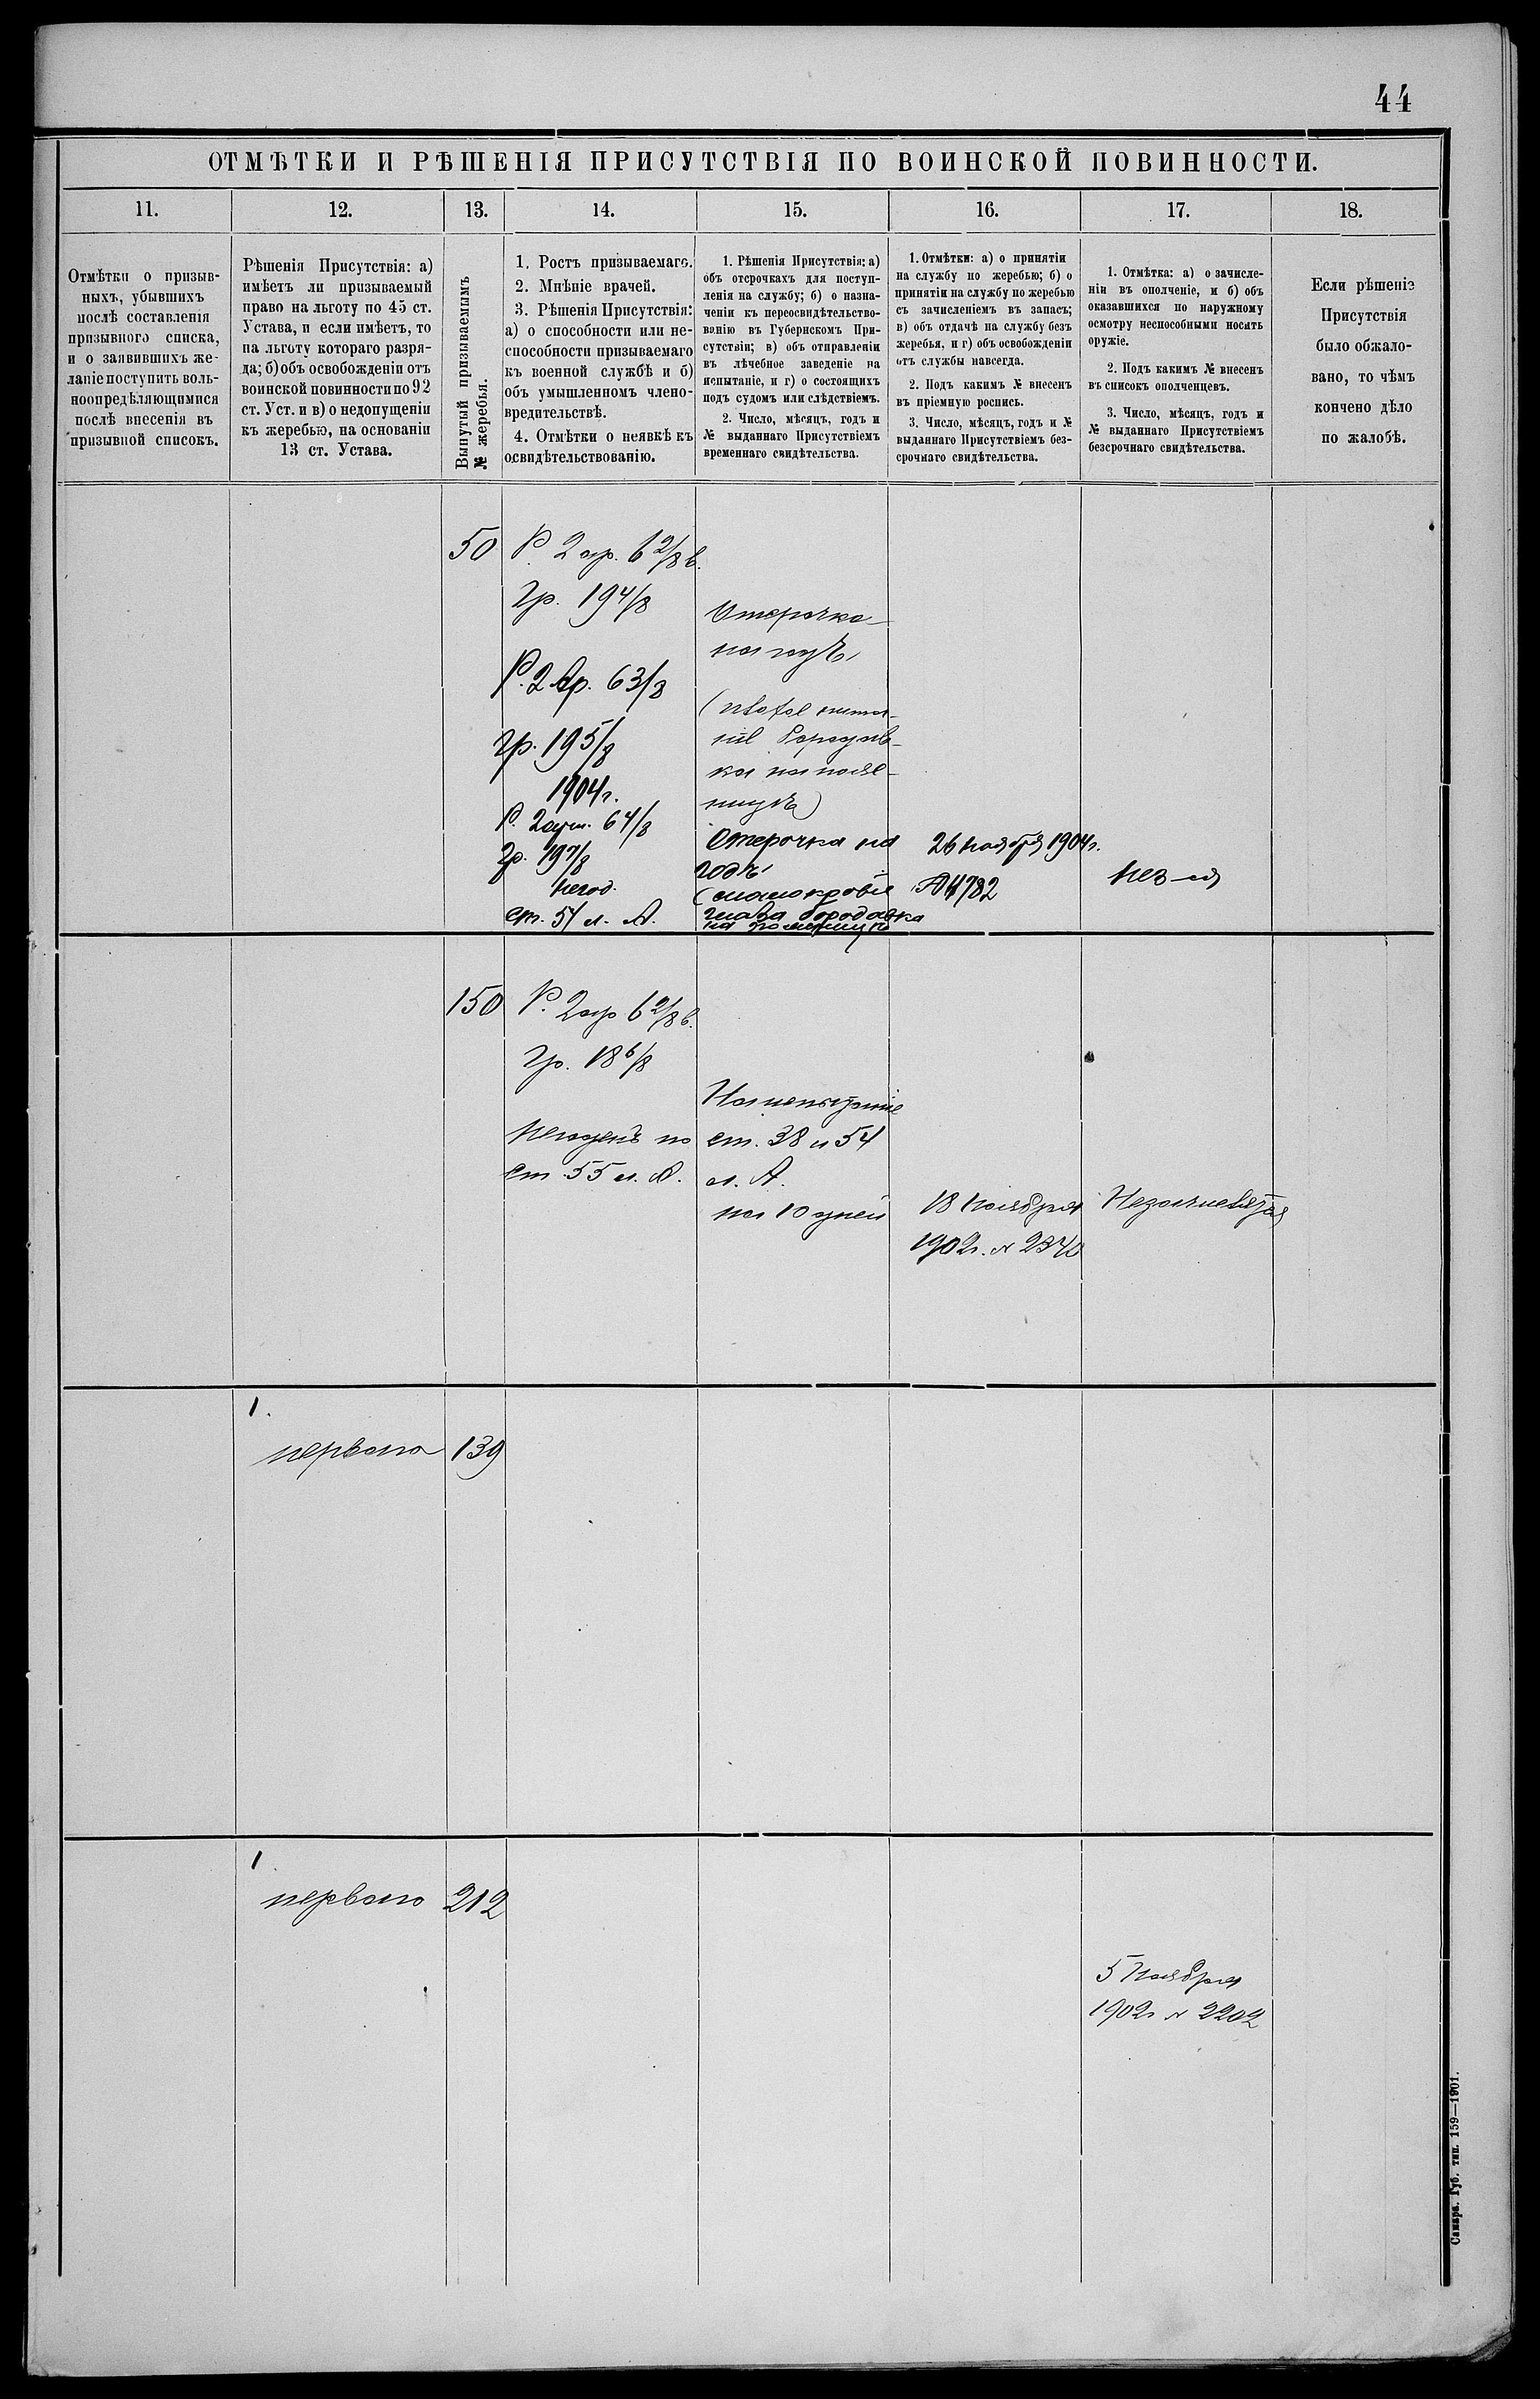 44
ОТМѢТКИ И РѢШЕНІЯ ПРИСУТСТВІЯ ПО ВОИНСКОЙ ПОВИННОСТИ.
11.
12.
13.
14.
15.
16.
17.
18.
Отмѣтки о призыв-
ныхъ, убывшихъ
послѣ составленія
призывного списка,
и о заявившихъ же-
ланіе поступить воль-
ноопредѣляющимися
послѣ внесенія въ
призывной списокъ.
Рѣшенія Присутствія: а)
имѣетъ ли призываемый
право на льготу по 45 ст.
Устава, и если имѣетъ, то
на льготу котораго разря-
да; б) объ освобожденіи отъ
воинской повинности по 92
ст. Уст. и в) о недопущеніи
къ жеребью, на основаніи
13 ст. Устава.
Вынутый призываемымъ
№ жеребья.
1. Ростъ призываемаго.
2. Мнѣніе врачей.
3. Рѣшенія Присутствія:
а) о способности или не-
способности призываемаго
къ военной службѣ и б)
объ умышленномъ члено-
вредительствѣ.
4. Отмѣтки о неявкѣ къ
освидѣтельствованію.
1. Рѣшенія Присутствія: а)
объ отсрочкахъ для поступ-
ленія на службу; б) о назна-
ченіи къ переосвидѣтельство-
ванію въ Губернскомъ При-
сутствіи; в) объ отправленіи
въ лѣчебное заведеніе на
испытаніе, и г) о состоящихъ
подъ судомъ или слѣдствіемъ.
2. Число, мѣсяцъ, годъ и
№ выданнаго Присутствіемъ
временнаго свидѣтельства.
1. Отмѣтки: а) о принятіи
на службу по жеребью; б) о
принятіи на службу по жеребью
съ зачисленіемъ въ запасъ;
в) объ отдачѣ на службу безъ
жеребья, и г) объ освобожденіи
отъ службы навсегда.
2. Подъ какимъ № внесенъ
въ пріемную роспись.
3. Число, мѣсяцъ, годъ и №
выданнаго Присутствіемъ без-
срочнаго свидѣтельства.
1. Отмѣтка: а) о зачисле-
ніи въ ополченіе, и б) объ
оказавшихся по наружному
осмотру неспособными носить
оружіе.
2. Подъ какимъ № внесенъ
въ списокъ ополченцевъ.
3. Число, мѣсяцъ, годъ и
№ выданнаго Присутствіемъ
безсрочнаго свидѣтельства.
Если рѣшеніе
Присутствія
было обжало-
вано, то чѣмъ
кончено дѣло
по жалобѣ.
50
Р. 2 ар. 6 2/8 в.
Гр. 19 4/8
Р. 2 Ар. 6 3/8
гр. 19 5/8
1904 г.
Р. 2 арш. 6 4/8
Гр. 19 7/8
негод.
ст. 51 л. А.
Отсрочка
на годъ
Отсрочка на
годъ
(малокровіе
бородавка
26 ноября 1904 г.
№ 4782
нез-ся
150
Р. 2 ар 6 2/8 в.
Гр. 18 6/8
Негоденъ по
ст. 55 л. А.
На испытаніе
ст. 38 и 54
л. А.
на 10 дней
18 Ноября
1902 г. № 2340
Незачисляется
1.
перваго
139
1
перваго
212
5 Ноября
1902 г № 2202
Самара. Губ. тип. 159—1901.